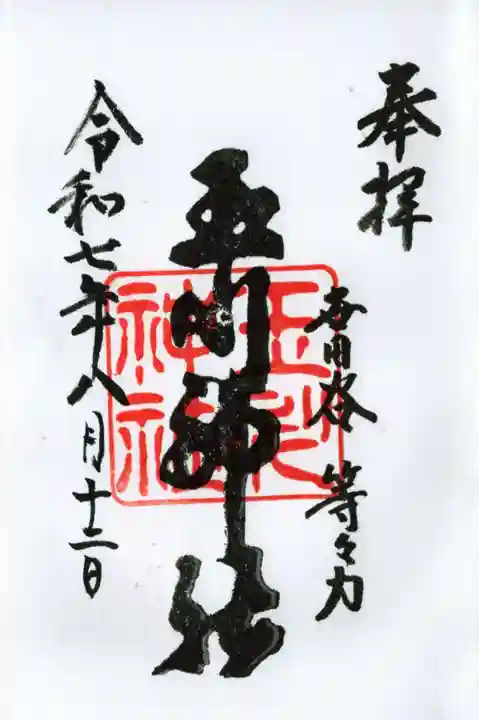 奉拝
世田谷 等々力
玉川神社
玉川神社
令和七年八月十二日